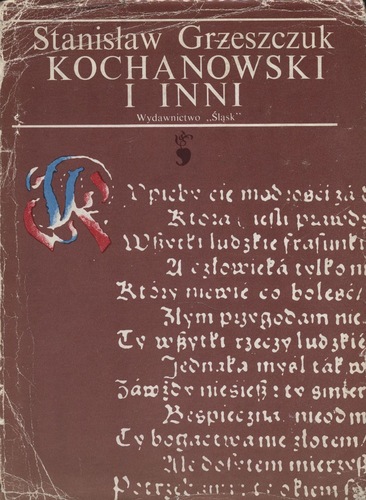 Stanisław Grzeszczuk
KOCHANOWSKI
I INNI
Wydawnictwo „Śląsk”
KVpićby cię mądrości zá d
Ktora (ieśli prawdź
Wßytki ludzkie frásunki
A człowieká tylko n
Ktory niewie co boleść/
Złym przygodam nie
Ty wßytki rzeczy ludzkié
Jednáką myśl tak w
Záwżdy niesieß: ty śmier
Bespieczna, nieodm
Ty bogáctwá nie złotem/
Ale dosytem mierzyß
Potrzebámi: ty okiem